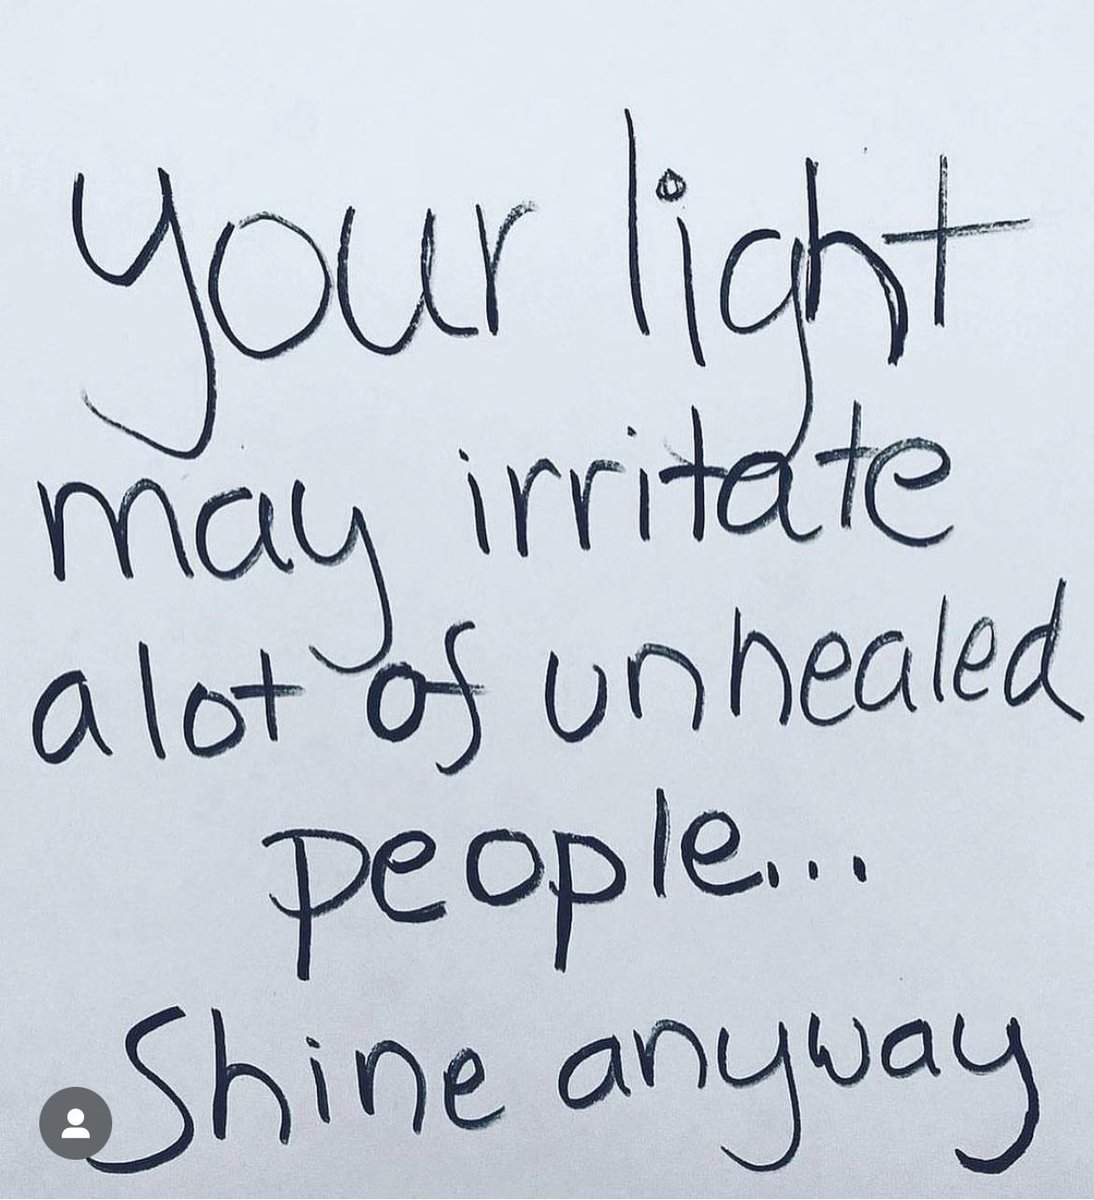 your light
may irritate
a lot of unhealed
people...
Shine anyway